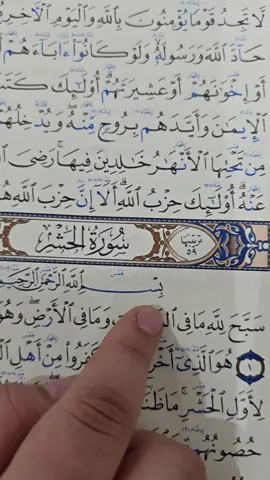 لَّا تَجِدُ قَوْمًا يُؤْمِنُونَ بِٱللَّهِ وَٱلْيَوْمِ ٱلْءَاخِرِ
حَآدَّ ٱللَّهَ وَرَسُولَهُۥ وَلَوْ كَانُوٓا۟ ءَابَآءَهُمْ
أَوْ إِخْوَٰنَهُمْ أَوْ عَشِيرَتَهُمْ ۚ أُو۟لَـٰٓئِكَ
ٱلْإِيمَـٰنَ وَأَيَّدَهُم بِرُوحٍ مِّنْهُ ۖ وَيُدْخِلُهُمْ
مِن تَحْتِهَا ٱلْأَنْهَـٰرُ خَـٰلِدِينَ فِيهَا ۚ رَضِىَ
عَنْهُ ۚ أُو۟لَـٰٓئِكَ حِزْبُ ٱللَّهِ ۚ أَلَآ إِنَّ حِزْبَ ٱللَّهِ
سُورَةُ ٱلْحَشْرِ
ترتيبها ٥٩
بِسْمِ ٱللَّهِ ٱلرَّحْمَـٰنِ ٱلرَّحِيمِ
سَبَّحَ لِلَّهِ مَا فِى وَمَا فِى ٱلْأَرْضِ ۖ وَهُوَ
١ هُوَ ٱلَّذِىٓ كَفَرُوا۟ مِنْ أَهْلِ
لِأَوَّلِ ٱلْحَشْرِ ۚ مَا ظَنَنتُمْ
حُصُونُهُم